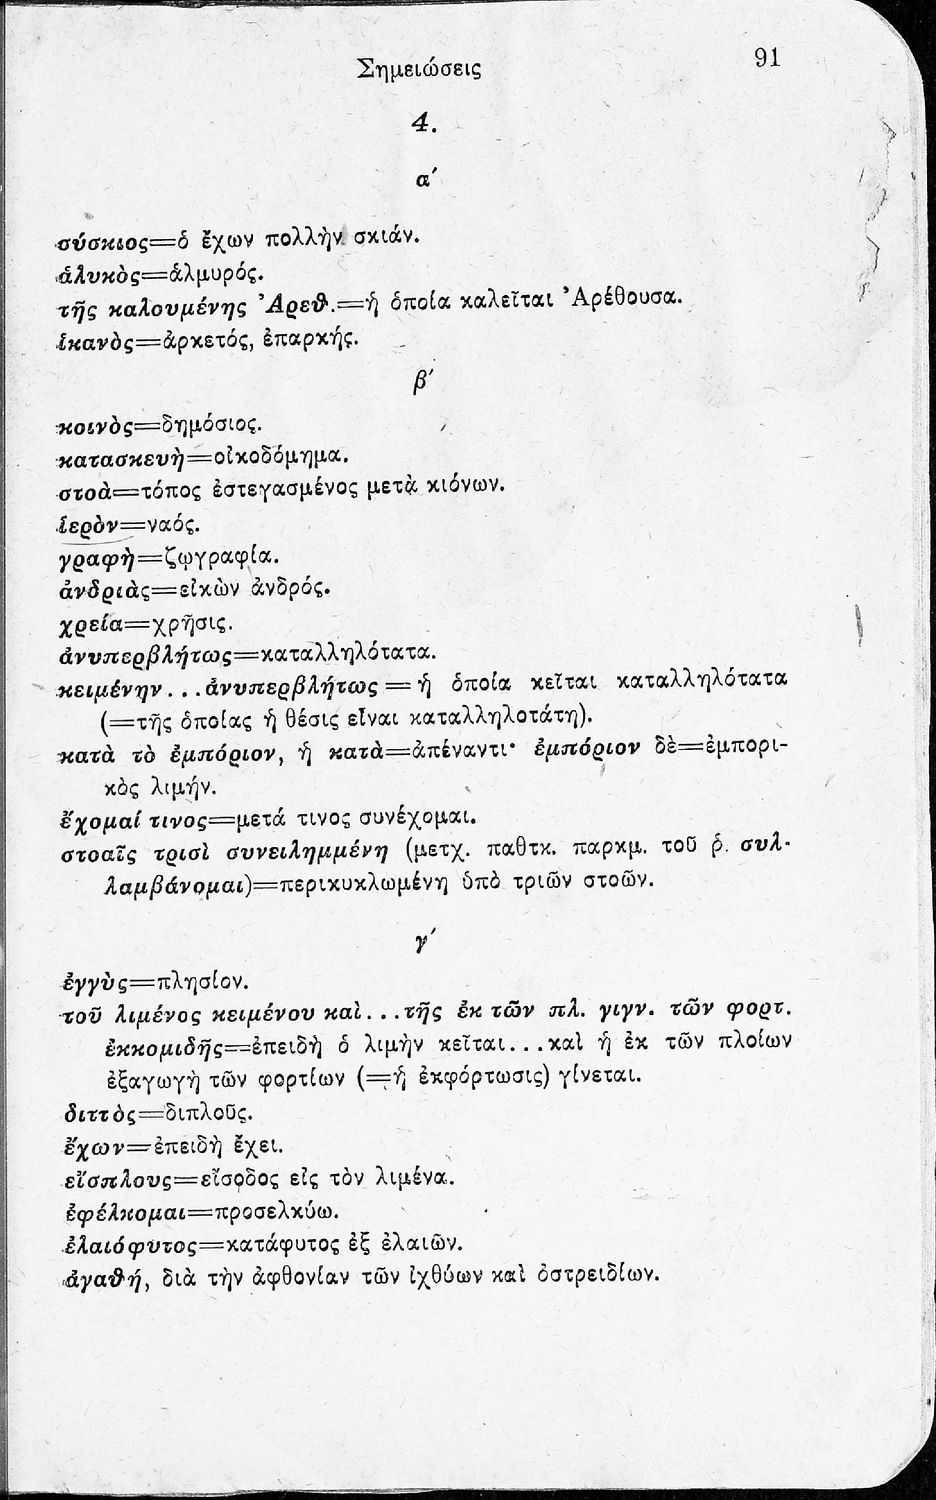 Σημειώσεις
91
4.
α΄
σύσκιος=ὁ ἔχων πολλὴν σκιάν.
ἁλυκὸς=ἁλμυρός.
τῆς καλουμένης Ἀρεθ.=ἡ ὁποία καλεῖται Ἀρέθουσα.
ἱκανὸς=ἀρκετός, ἐπαρκής.
β΄
κοινὸς=δημόσιος.
κατασκευὴ=οἰκοδόμημα.
στοὰ=τόπος ἐστεγασμένος μετὰ κιόνων.
ἱερὸν=ναός.
γραφὴ=ζῳγραφία.
ἀνδριὰς=εἰκὼν ἀνδρός.
χρεία=χρῆσις.
ἀνυπερβλήτως=καταλληλότατα.
κειμένην...ἀνυπερβλήτως = ἡ ὁποία κεῖται καταλληλότατα
(=τῆς ὁποίας ἡ θέσις εἶναι καταλληλοτάτη).
κατὰ τὸ ἐμπόριον, ἡ κατὰ=ἀπέναντι· ἐμπόριον δὲ=ἐμπορι-
κὸς λιμήν.
ἔχομαί τινος=μετά τινος συνέχομαι.
στοαῖς τρισὶ συνειλημμένη (μετχ. παθτκ. παρκμ. τοῦ ῥ. συλ-
λαμβάνομαι)=περικυκλωμένη ὑπὸ τριῶν στοῶν.
γ΄
ἐγγὺς=πλησίον.
τοῦ λιμένος κειμένου καὶ...τῆς ἐκ τῶν πλ. γιγν. τῶν φορτ.
ἐκκομιδῆς=ἐπειδὴ ὁ λιμὴν κεῖται...καὶ ἡ ἐκ τῶν πλοίων
ἐξαγωγὴ τῶν φορτίων (=ἡ ἐκφόρτωσις) γίνεται.
διττὸς=διπλοῦς.
ἔχων=ἐπειδὴ ἔχει.
εἴσπλους=εἴσοδος εἰς τὸν λιμένα.
ἐφέλκομαι=προσελκύω.
ἐλαιόφυτος=κατάφυτος ἐξ ἐλαιῶν.
ἀγαθή, διὰ τὴν ἀφθονίαν τῶν ἰχθύων καὶ ὀστρειδίων.